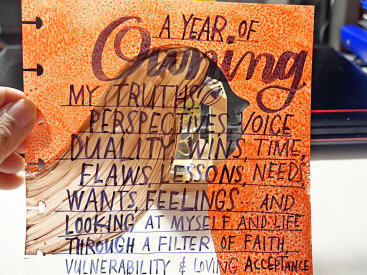 A YEAR OF
Owning
MY TRUTHS
PERSPECTIVES, VOICE
DUALITY, WINS, TIME,
FLAWS, LESSONS, NEEDS,
WANTS, FEELINGS, AND
LOOKING AT MYSELF AND LIFE
THROUGH A FILTER OF FAITH,
VULNERABILITY & LOVING ACCEPTANCE